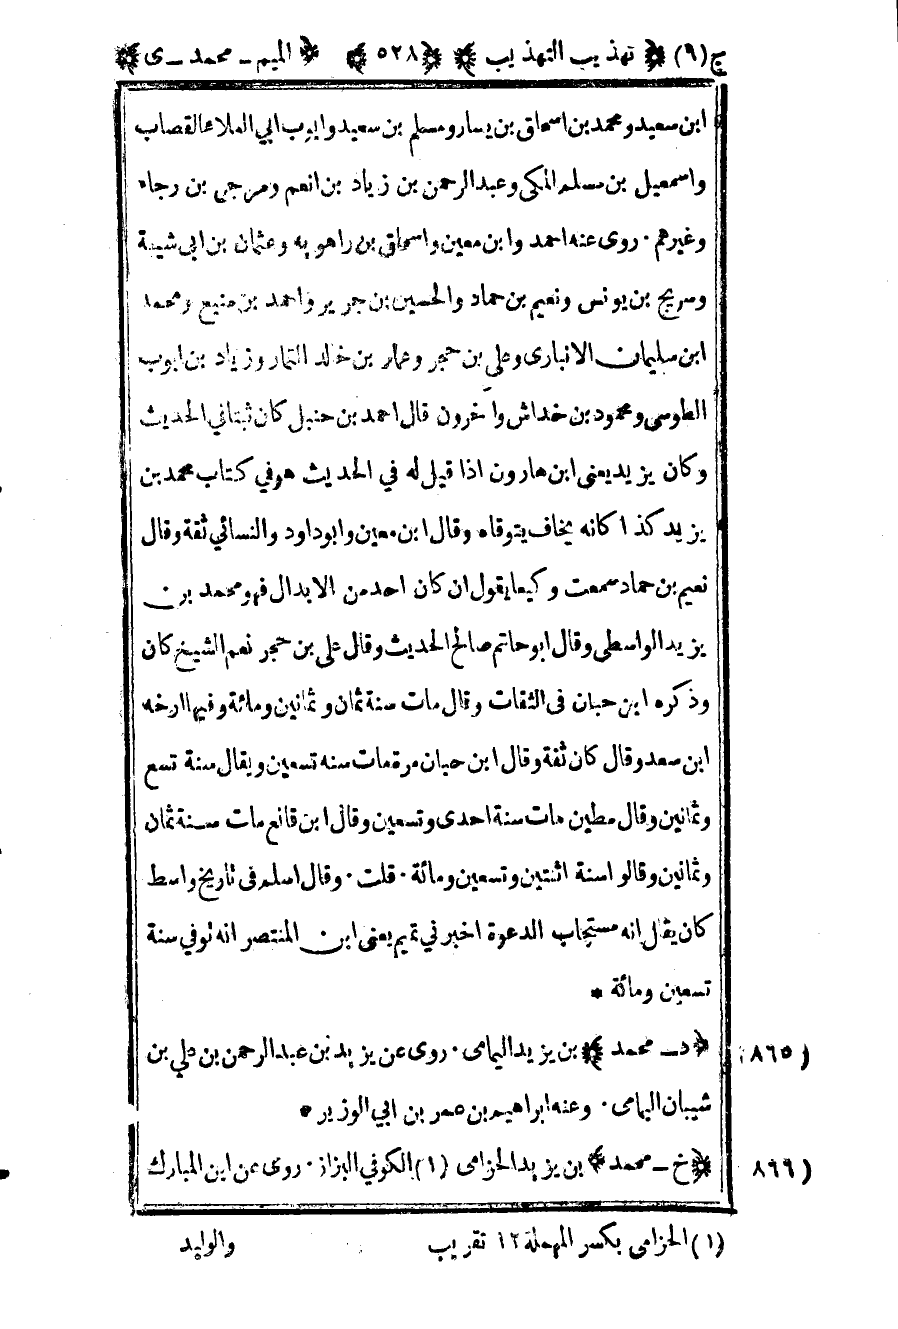 ج(٩) ﴿ تهذيب التهذيب ﴾ ﴿٥٢٨﴾ ﴿ الميم ـ محمد ـ ى ﴾
ابن سعيد و محمد بن اسحاق بن يسار و مسلم بن سعيد و ايوب ابي العلاء القصاب
و اسمعيل بن مسلم المكى و عبد الرحمن بن زياد بن انعم و مرجى بن رجاء
و غيرهم · روى عنه احمد و ابن معين و اسحاق بن راهويه و عثمان بن ابى شيبة
و سريج بن يونس و نعيم بن حماد والحسين بن جرير و احمد بن منيع و محمد
ابن سليمان الانبارى و على بن حجر و عمار بن خالد التمار و زياد بن ايوب
الطوسى و محمود بن خداش و آخرون قال احمد بن حنبل كان ثبتا فى الحديث
و كان يزيد يعنى ابن هارون اذا قيل له في الحديث هو في كتاب محمد بن
يزيد كذا كانه يخاف يتوقاه و قال ابن معين و ابو داود و النسائي ثقة و قال
نعيم بن حماد سمعت وكيعا يقول ان كان احد من الابدال فهو محمد بن
يزيد الواسطى و قال ابو حاتم صالح الحديث و قال على بن حجر نعم الشيخ كان
و ذكره ابن حبان فى الثقات و قال مات سنة ثمان و ثمانين و مائة و فيها ارخه
ابن سعد و قال كان ثقة و قال ابن حبان مرة مات سنه تسعين و يقال سنة تسع
و ثمانين و قال مطين مات سنة احدى و تسعين و قال ابن قانع مات سنة ثمان
و ثمانين و قالوا سنة اثنتين و تسعين و مائة · قلت · و قال اسلم فى تاريخ واسط
كان يقال انه مستجاب الدعوة اخبر في تميم يعنى ابن المنتصر انه توفي سنة
تسعين و مائة *
(٨٦٥) ﴿ د ـ محمد ﴾ بن يزيد اليمامى · روى عن يزيد بن عبد الرحمن بن علي بن
شيبان اليمامى · و عنه ابراهيم بن عمر بن ابي الوزير *
(٨٦٦) ﴿ خ ـ محمد ﴾ بن يزيد الحزامى (١) الكوفي البزاز · روى عن ابن المبارك
(١) الحزامى بكسر المهملة ١٢ تقريب
والوليد